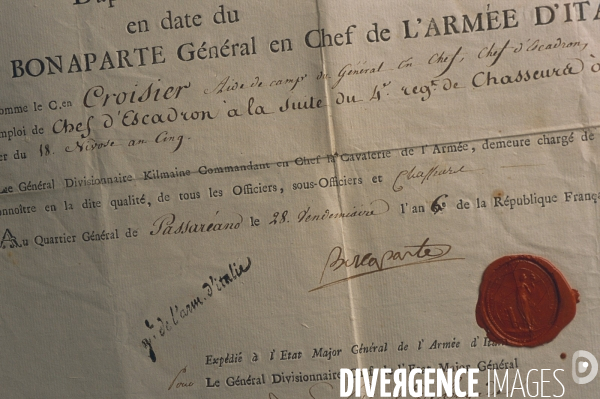 en date du
BONAPARTE Général en Chef de L'ARMÉE D'ITA
omme le C.en Croisier Aide de camp du Général en Chef, Chef-d'Escadron,
mploi de Chef d'Escadron à la suite du 4e. regt. de Chasseurs à
er du 18. Nivose an Cinq.
Le Général Divisionnaire Kilmaine Commandant en Chef la Cavalerie de l'Armée, demeure chargé de
onnoître en la dite qualité, de tous les Officiers, sous-Officiers et Chasseurs
Au Quartier Général de Passaréano le 28. Vendemiaire l'an 6e de la République França
Bonaparte
de l'arm. d'italie
Expédié à l'Etat Major Général de l'Armée d'Ita
Pour Le Général Divisionnaire Chef de l'Etat Major Général
DIVERGENCE IMAGES